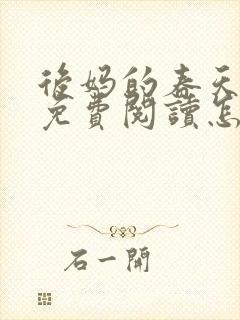 後妈的春天
免費閱讀怎
石一開